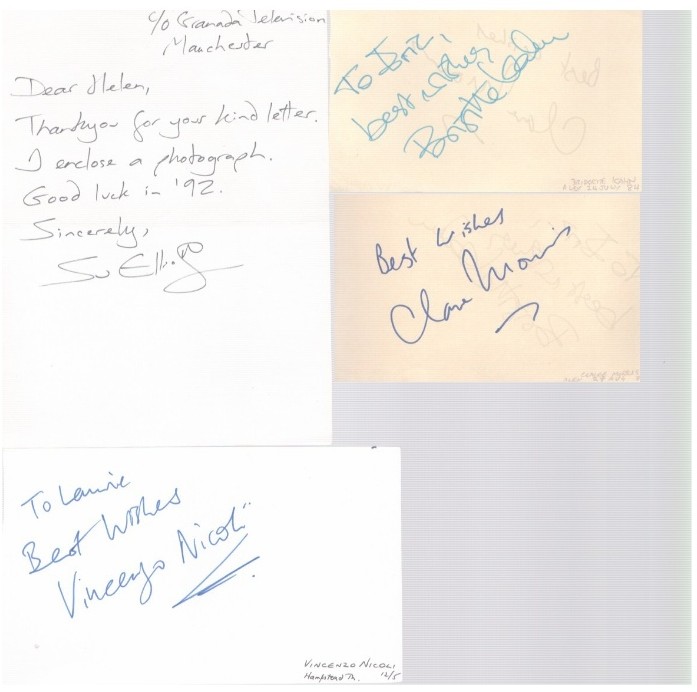 c/o Granada Television
Manchester
Dear Helen,
Thankyou for your kind letter.
I enclose a photograph.
Good luck in '92.
Sincerely,
Su Elliott
To Eric,
best wishes
Brigitte Kahn
Best Wishes
Clare
To Laurie
Best Wishes
Vincenzo Nicoli
VINCENZO NICOLI
Hampstead Th. 12/5